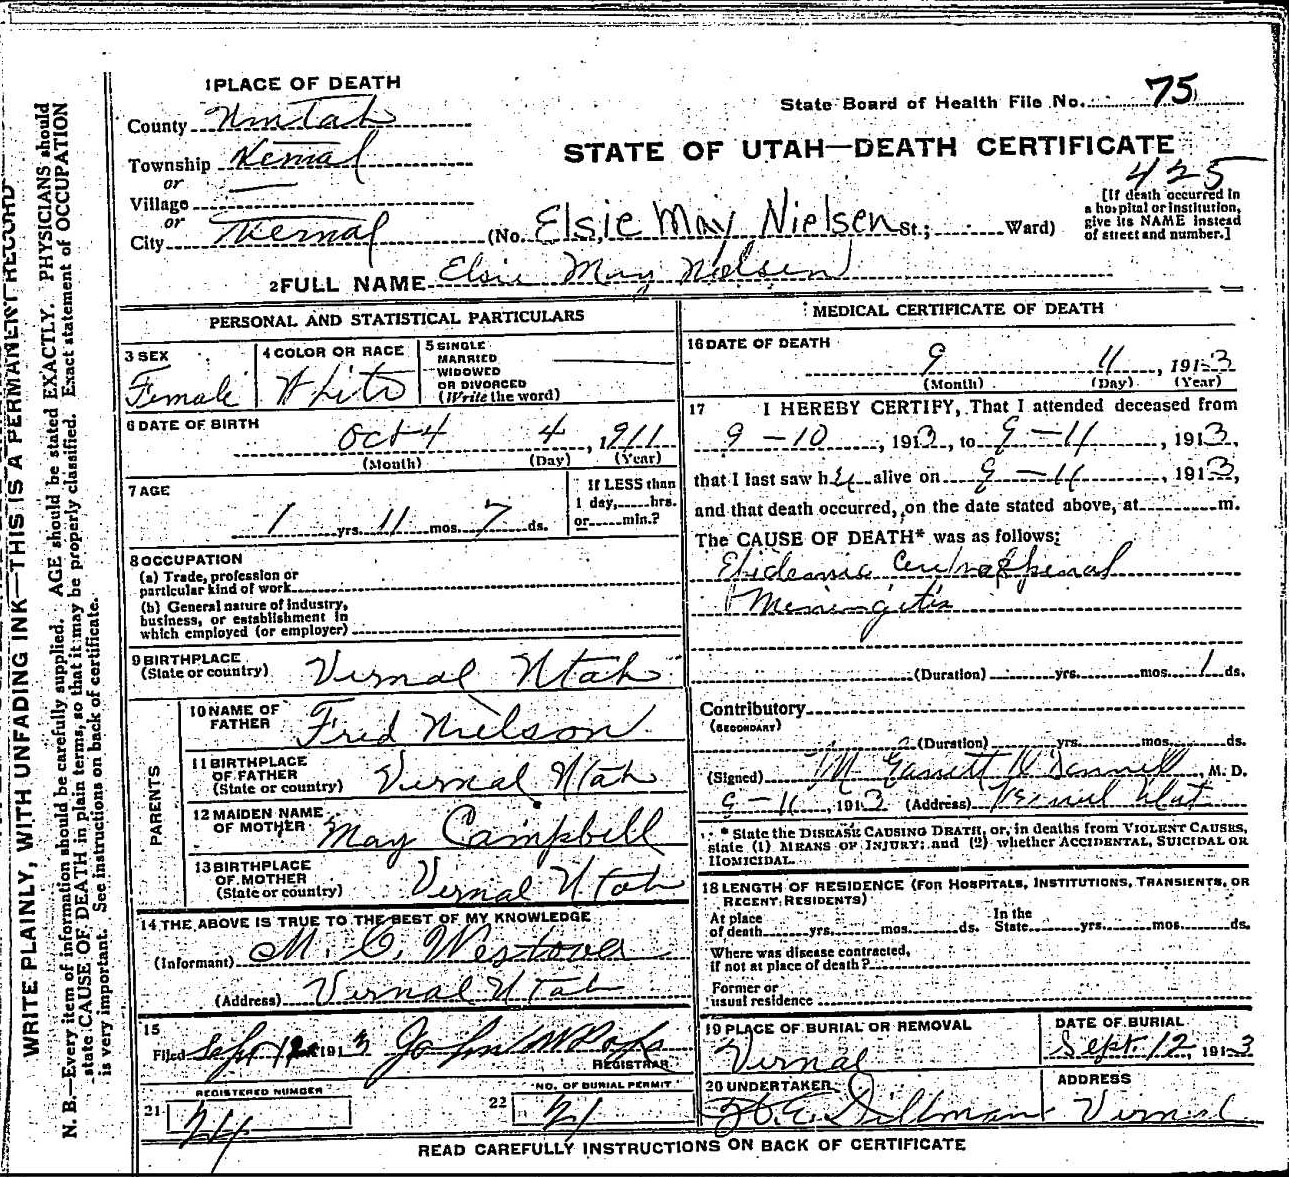 1 PLACE OF DEATH
State Board of Health File No. 75
County Uintah
STATE OF UTAH—DEATH CERTIFICATE
425
Township Vernal
or
Village
or
City Vernal (No. Elsie May Nielsen St.; Ward)
[If death occurred in
a hospital or institution,
give its NAME instead
of street and number.]
2 FULL NAME Elsie May Nielsen
PERSONAL AND STATISTICAL PARTICULARS
3 SEX
Female
4 COLOR OR RACE
White
5 SINGLE
MARRIED
WIDOWED
OR DIVORCED
(Write the word)
6 DATE OF BIRTH
Oct 4 4, 1911
(Month) (Day) (Year)
7 AGE
1 yrs. 11 mos. 7 ds.
If LESS than
1 day, hrs.
or min.?
8 OCCUPATION
(a) Trade, profession or
particular kind of work
(b) General nature of industry,
business, or establishment in
which employed (or employer)
9 BIRTHPLACE
(State or country) Vernal Utah
PARENTS
10 NAME OF
FATHER Fred Nielson
11 BIRTHPLACE
OF FATHER
(State or country) Vernal Utah
12 MAIDEN NAME
OF MOTHER May Campbell
13 BIRTHPLACE
OF MOTHER
(State or country) Vernal Utah
14 THE ABOVE IS TRUE TO THE BEST OF MY KNOWLEDGE
(Informant) M. C. Westover
(Address) Vernal Utah
15
Filed Sept 1913 John
REGISTRAR
REGISTERED NUMBER
21
NO. OF BURIAL PERMIT
22
MEDICAL CERTIFICATE OF DEATH
16 DATE OF DEATH
9 11, 1913
(Month) (Day) (Year)
17 I HEREBY CERTIFY, That I attended deceased from
9-10, 1913, to 9-11, 1913,
that I last saw her alive on 9-11, 1913,
and that death occurred, on the date stated above, at m.
The CAUSE OF DEATH* was as follows:
Epidemic Cerebrospinal
Meningitis
(Duration) yrs. mos. 1 ds.
Contributory
(SECONDARY)
(Duration) yrs. mos. ds.
(Signed) Garrett, M. D.
9-11, 1913 (Address) Vernal Utah
* State the DISEASE CAUSING DEATH, or, in deaths from VIOLENT CAUSES,
state (1) MEANS OF INJURY; and (2) whether ACCIDENTAL, SUICIDAL OR
HOMICIDAL.
18 LENGTH OF RESIDENCE (FOR HOSPITALS, INSTITUTIONS, TRANSIENTS, OR
RECENT RESIDENTS)
At place
of death yrs. mos. ds.
In the
State yrs. mos. ds.
Where was disease contracted,
if not at place of death?
Former or
usual residence
19 PLACE OF BURIAL OR REMOVAL
Vernal
DATE OF BURIAL
Sept 12, 1913
20 UNDERTAKER
Dillman
ADDRESS
Vernal
READ CAREFULLY INSTRUCTIONS ON BACK OF CERTIFICATE
WRITE PLAINLY, WITH UNFADING INK—THIS IS A PERMANENT RECORD
N. B.—Every item of information should be carefully supplied. AGE should be stated EXACTLY. PHYSICIANS should
state CAUSE OF DEATH in plain terms, so that it may be properly classified. Exact statement of OCCUPATION
is very important. See instructions on back of certificate.